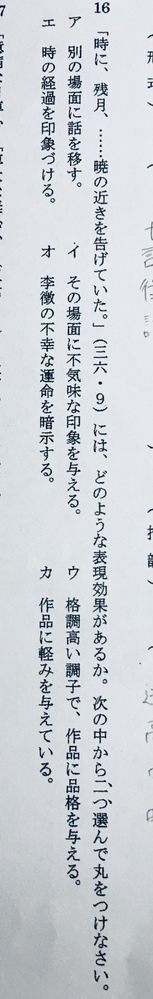 16 「時に、残月、……暁の近きを告げていた。」(三六・9)には、どのような表現効果があるか。次の中から二つ選んで丸をつけなさい。
ア 別の場面に話を移す。 イ その場面に不気味な印象を与える。 ウ 格調高い調子で、作品に品格を与える。
エ 時の経過を印象づける。 オ 李徴の不幸な運命を暗示する。 カ 作品に軽みを与えている。